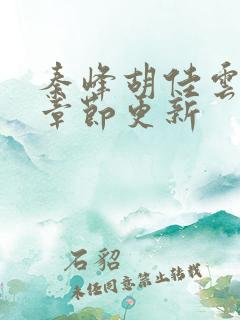 秦峰胡佳雲
章節更新
石貂
未经同意禁止转载